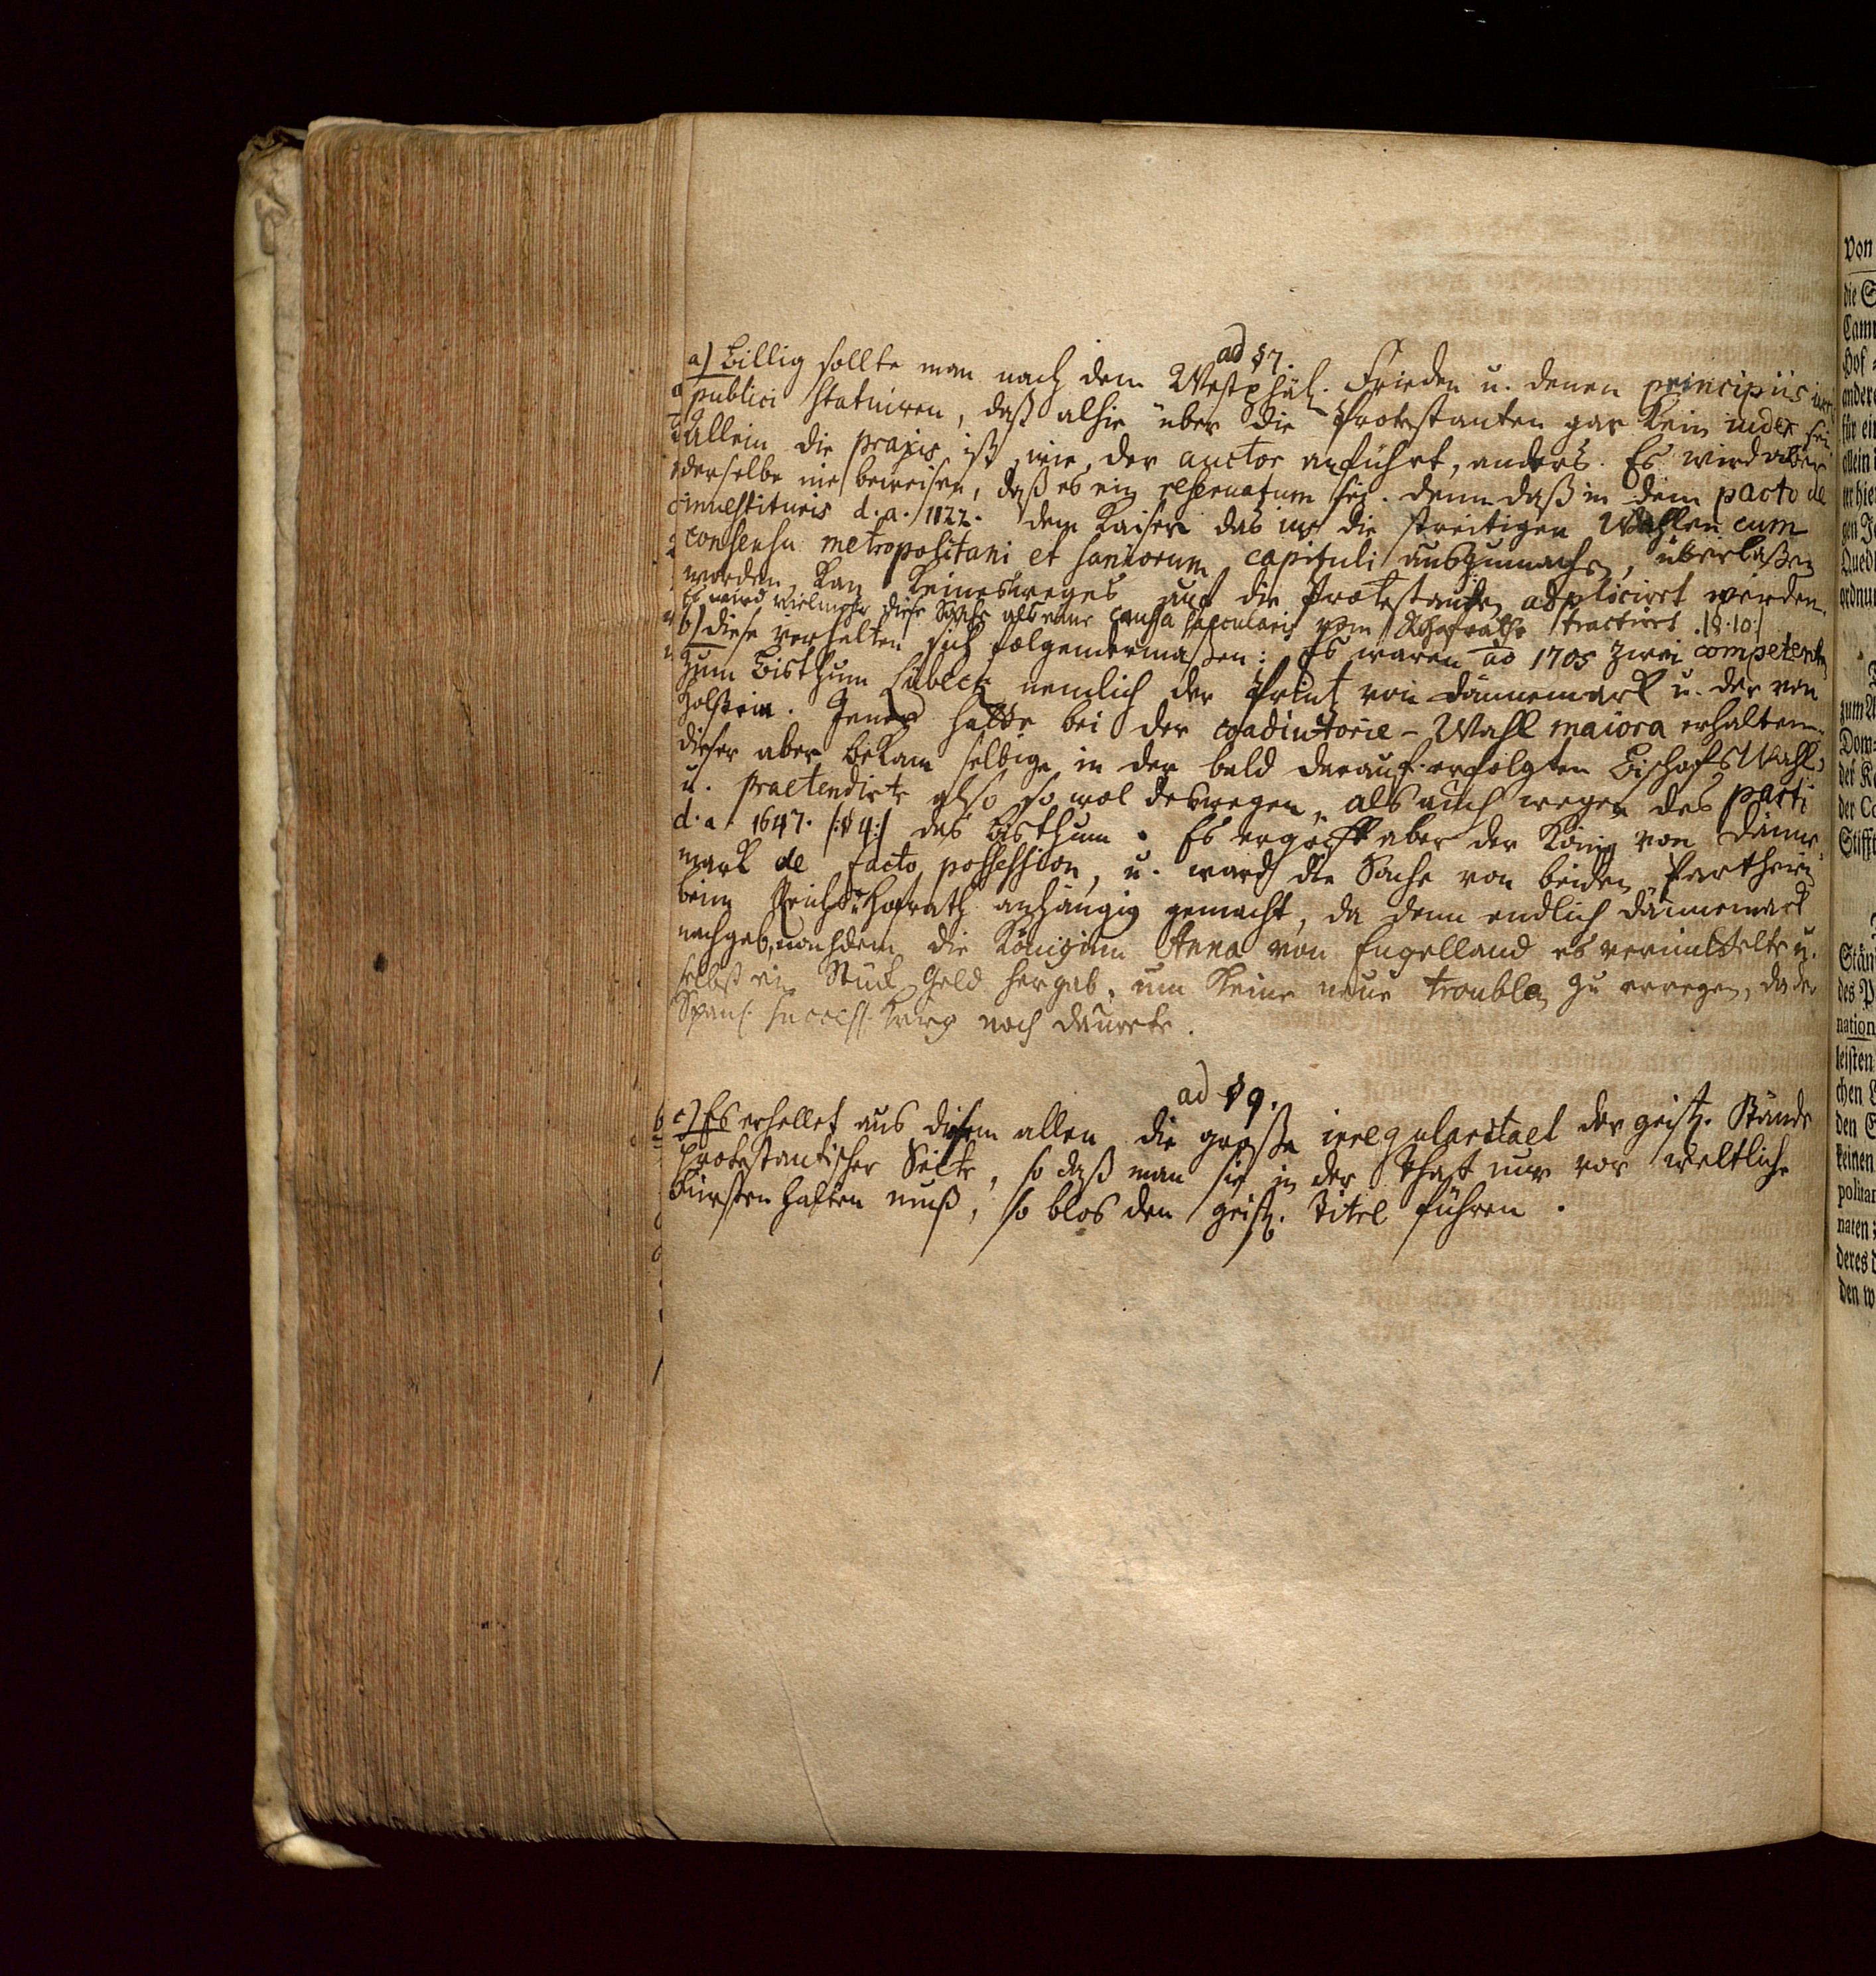 ad §7.
a) Billig sollte man nach dem Westphäl. Frieden u. denen principiis iur.
publici statuiren, daß alhie über die Protestanten gar kein iudex sei
allein die praxis ist, wie der auctor anführt, anders. Es wird aber
derselbe nie beweisen, daß es ein reservatum sei. denn daß in dem pacto de
investituris d. a. 1122. dem Kaiser das ius die streitigen Wahlen cum
consensu metropolitani et saniorum capituli auszumachen, überlaßen
worden, kan keinesweges auf die Protestanten adpliciret werden.
Es wird vielmehr diese Sache als eine caussa saecularis vom RHofrathe tractiret. |§.10:|
b) diese verhalten sich folgendermaßen: Es waren ao 1705 zwei competenten
zum Bisthum Lübeck nemlich der Print von Dännemark u. der von
Holstein. Jener hatte bei der coadiutorie-Wahl maiora erhalten
dieser aber bekam selbige in der bald darauf erfolgten Bischofs Wahl,
u. praetendirte also so wol deswegen, als auch wegen des pacti
d. a. 1647. |:§4:| das Bisthum. Es ergriff aber der König von Dänne
mark de facto possession, u. ward die Sache von beiden Partheien
beim Reichs Hofrath anhängig gemacht, da denn endlich Dännemark
nachgab, nachdem die Königinn Anna von Engelland es vermittelte u.
selbst ein Stück Geld hergab, um keine neue troublen zu erregen, da der
Span. success. Krieg noch daurete.
ad §9.
c) Es erhellet aus diesem allen die große irregularitaet der geistl. Stände
Protestantischer Seite, so daß man sie in der That nur vor weltliche
Fürsten halten muß, so blos den geistl. Titel führen.
Von
die S
Cam
Hof
andere
für ei
allein
er hie
gen J
Qued
ordnu
zum A
Dom-
der K
der C
Stifft
Stän
des P
nation
leisten
chen
den E
keinen
politan
naten
deres
den w